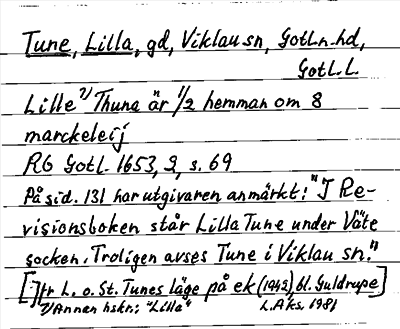 Tune, Lilla, gd, Viklau sn, Gotl.n.hd,
Gotl.L.
Lille¹⁾ Thuna är 1/2 hemman om 8
marckeleij
RG Gotl. 1653, 3, s. 69
På sid. 131 har utgivaren anmärkt: "I Re-
visionsboken står Lilla Tune under Väte
socken. Troligen avses Tune i Viklau sn."
[:] fr L. o. St. Tunes läge på ek (1942) bl. Guldrupe]
¹⁾ Annan hskr: "Lilla" L.A:ks. 1981